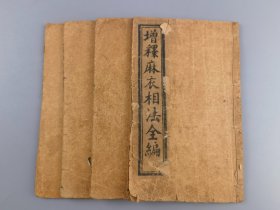 增釋麻衣相法全編